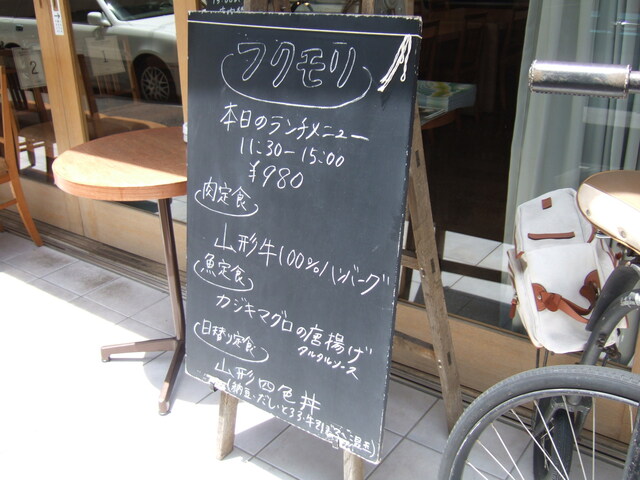 フクモリ
本日のランチメニュー
11:30-15:00
¥980
肉定食
山形牛100%ハンバーグ
魚定食
カジキマグロの唐揚げ
タルタルソース
日替り定食
山形四色丼
(納豆・だし・とろろ・牛